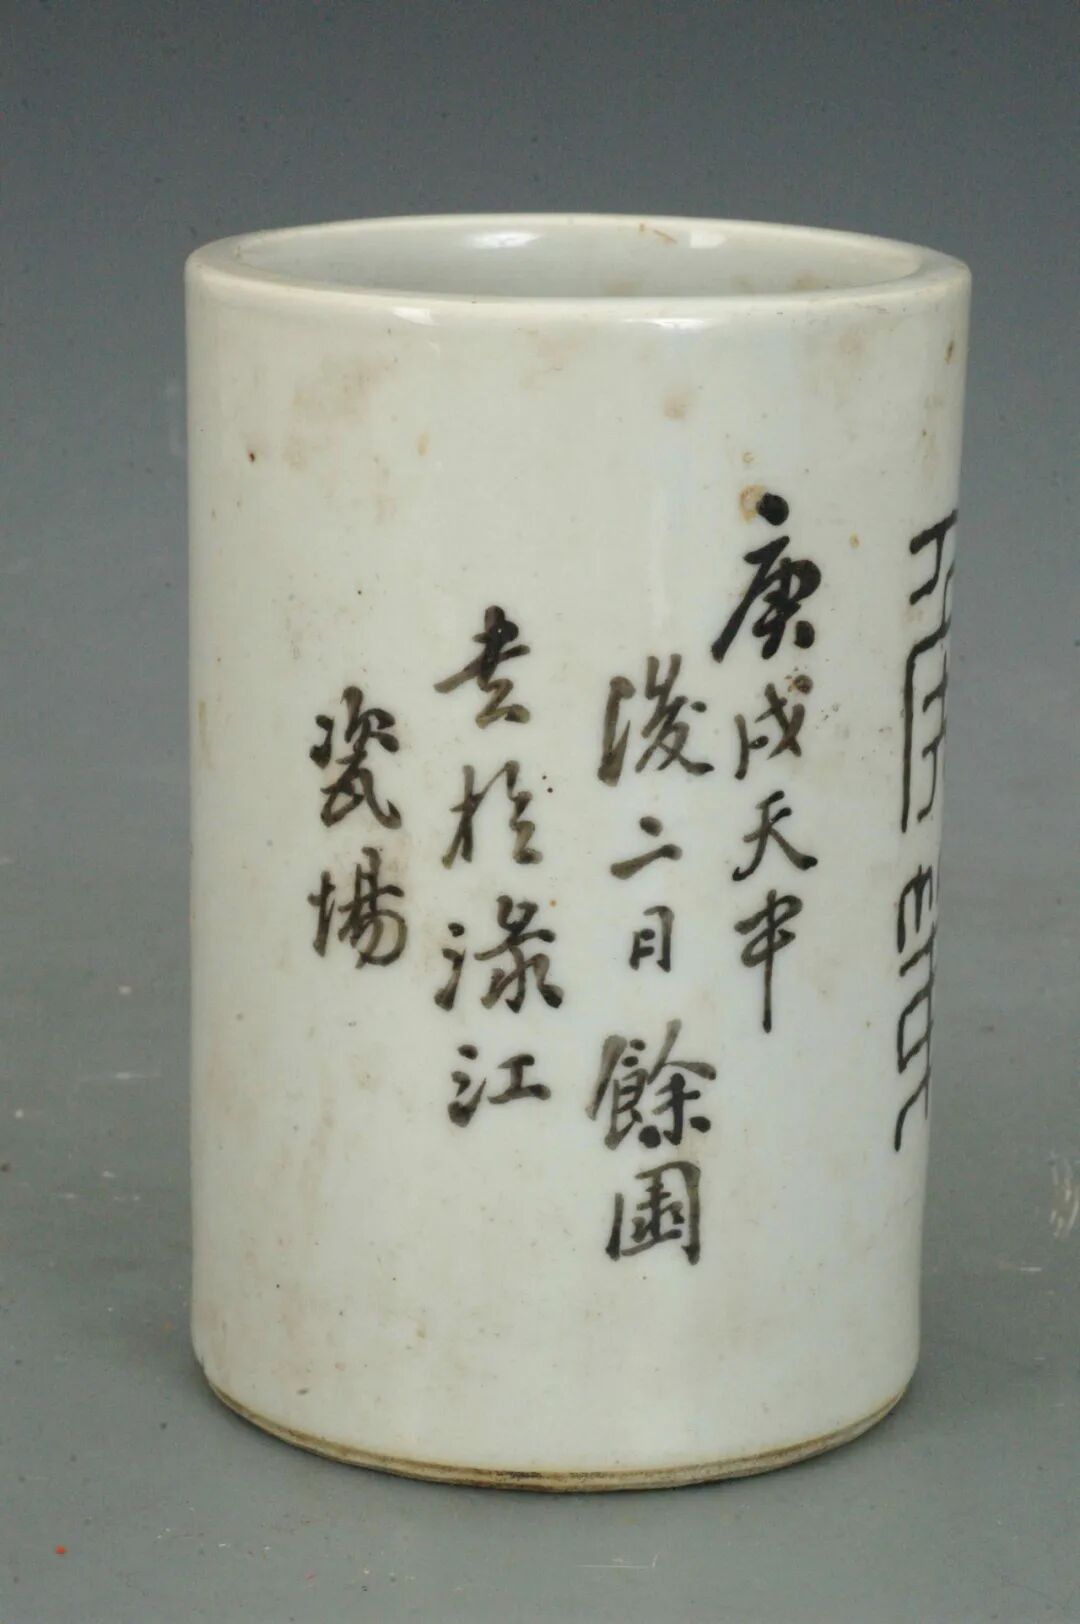 庚戌天中
後二日餘園
書於渌江
瓷場